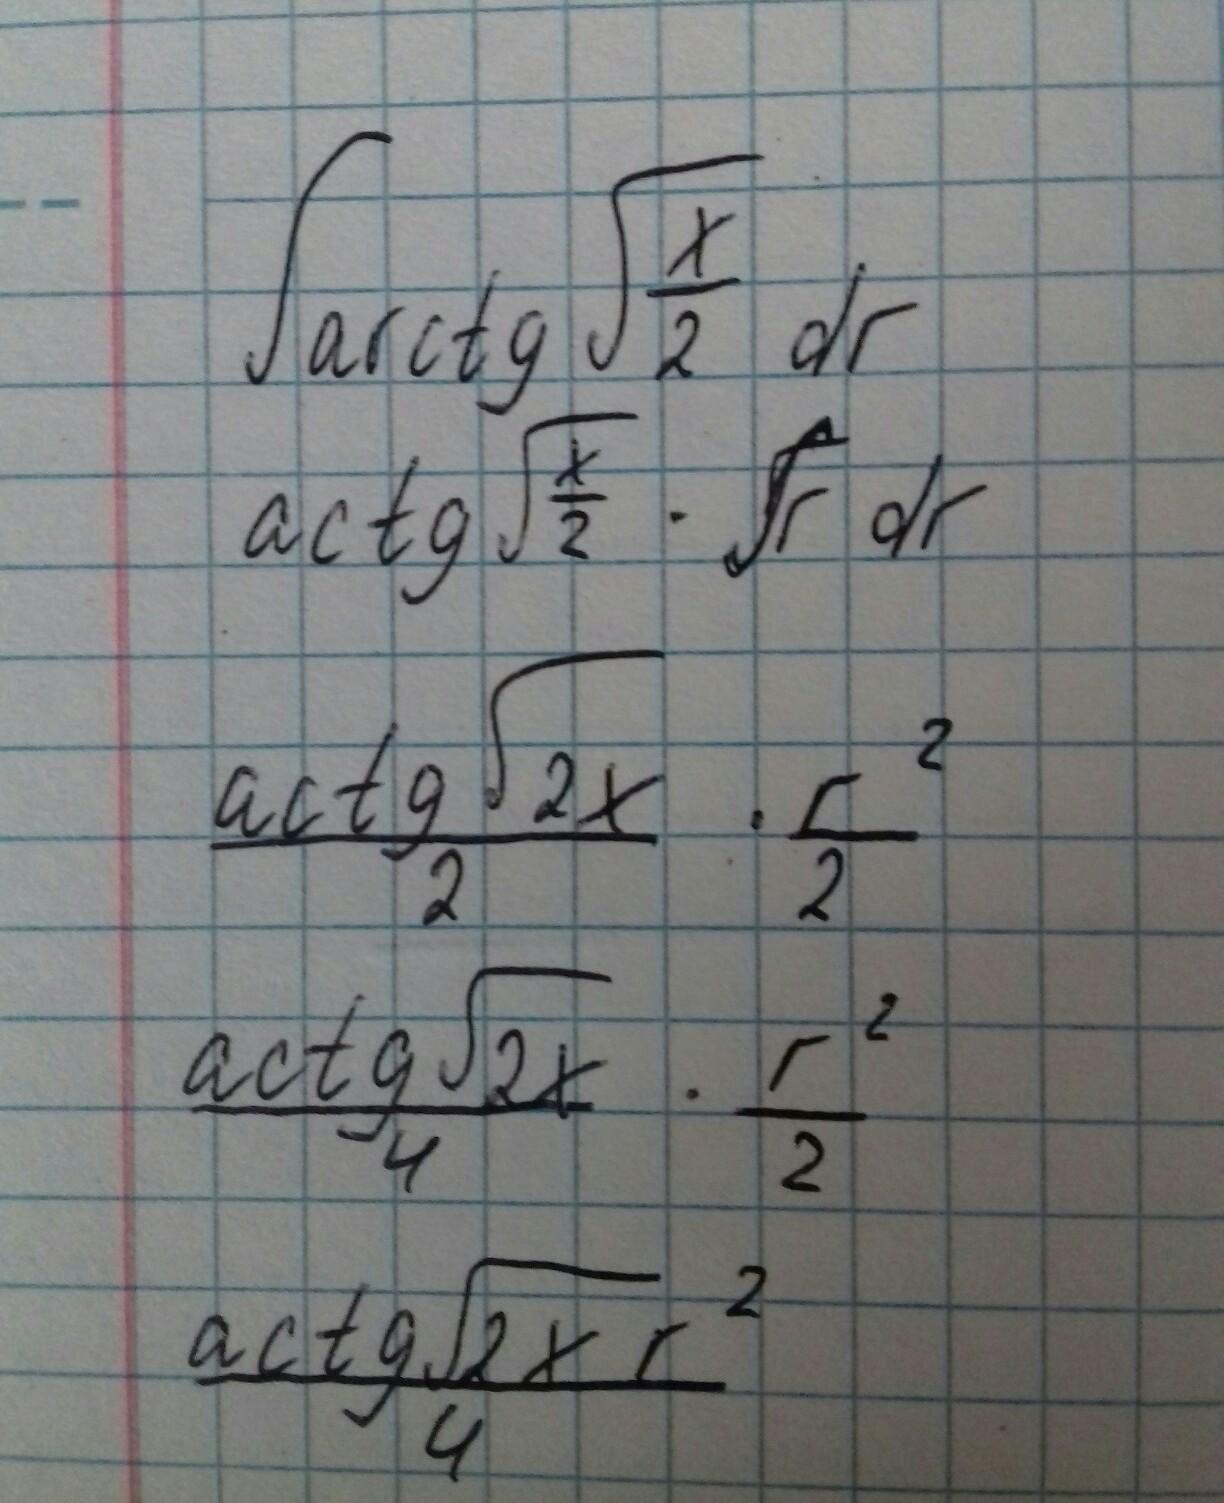 ∫ arctg √(x/2) dr
actg √(x/2) · ∫r dr
actg √2x / 2 · r² / 2
actg √2x / 4 · r² / 2
actg √2x r² / 4